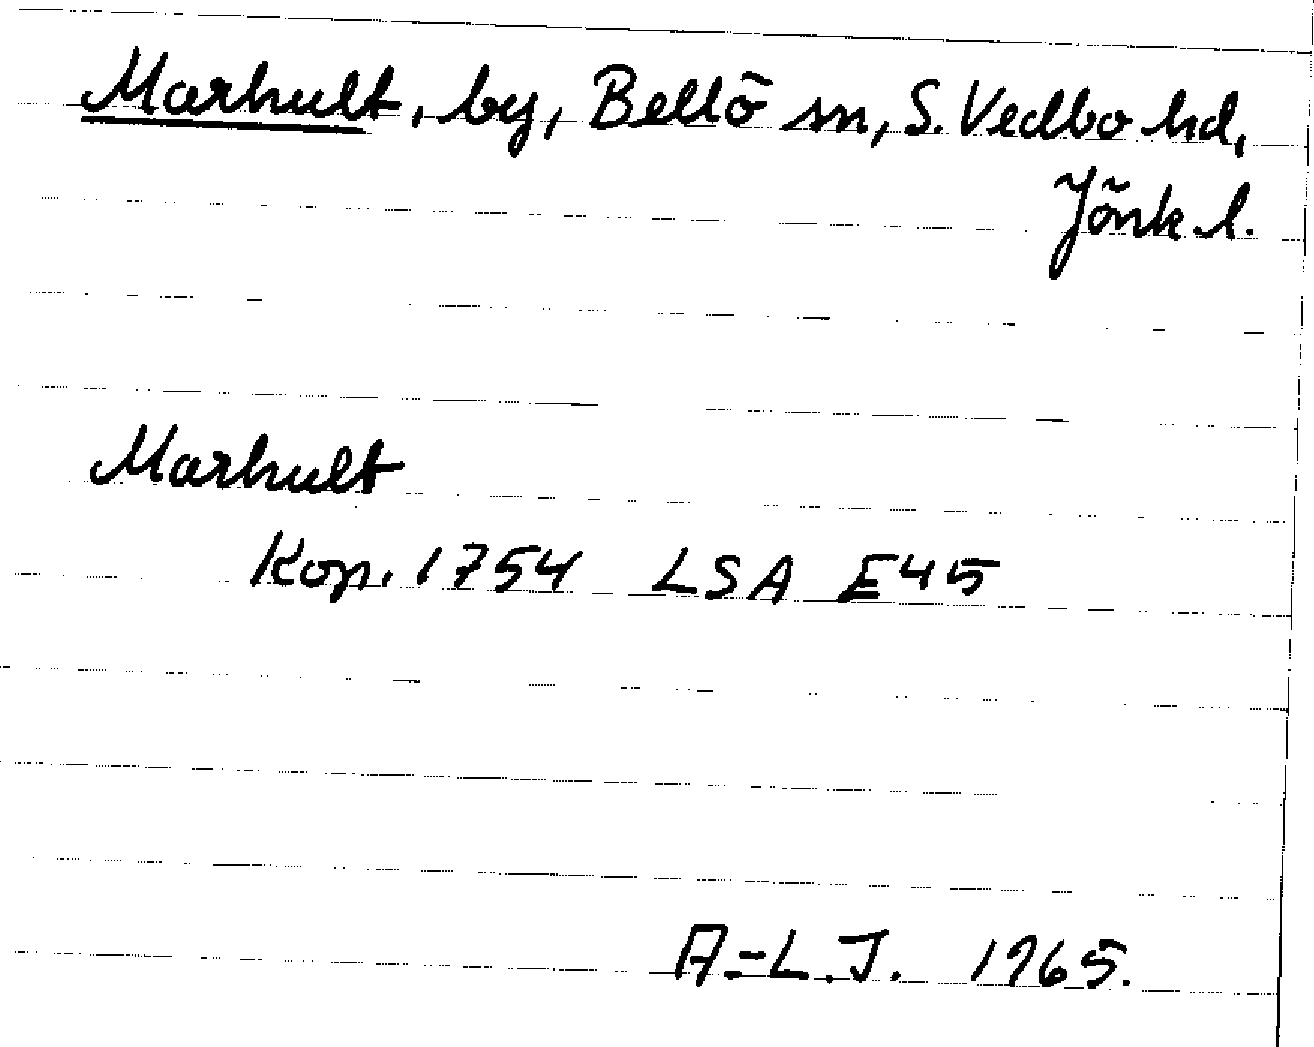 Marhult, by, Bellö sn, S. Vedbo hd,
Jönk. l.
Marhult
Kop. 1754 LSA E45
A-L.J. 1965.